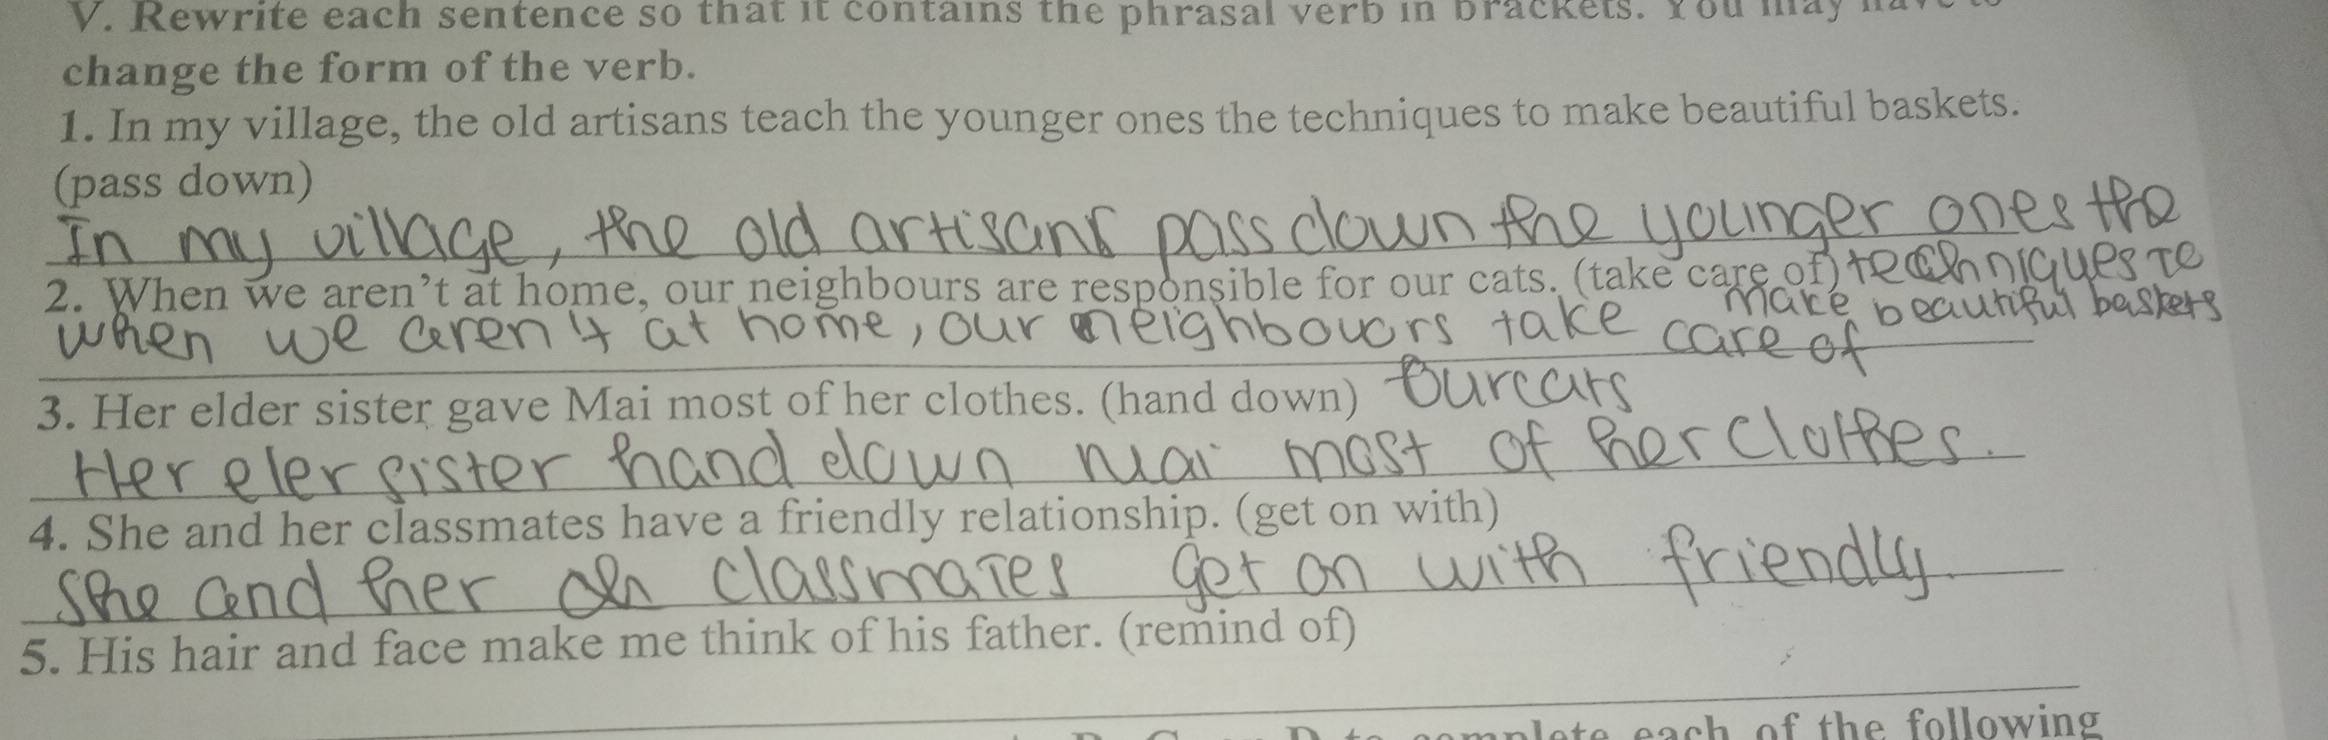 V. Rewrite each sentence so that it contains the phrasal verb in brackets. You may have to
change the form of the verb.
1. In my village, the old artisans teach the younger ones the techniques to make beautiful baskets.
(pass down)
In my village, the old artisans pass down the younger ones the
techniques to
make beautiful baskets
2. When we aren't at home, our neighbours are responsible for our cats. (take care of)
when we aren't at home, our neighbours take care of
our cats
3. Her elder sister gave Mai most of her clothes. (hand down)
Her eler sister hand down Mai most of her clothes.
4. She and her classmates have a friendly relationship. (get on with)
She and her classmates get on with friendly.
5. His hair and face make me think of his father. (remind of)
complete each of the following